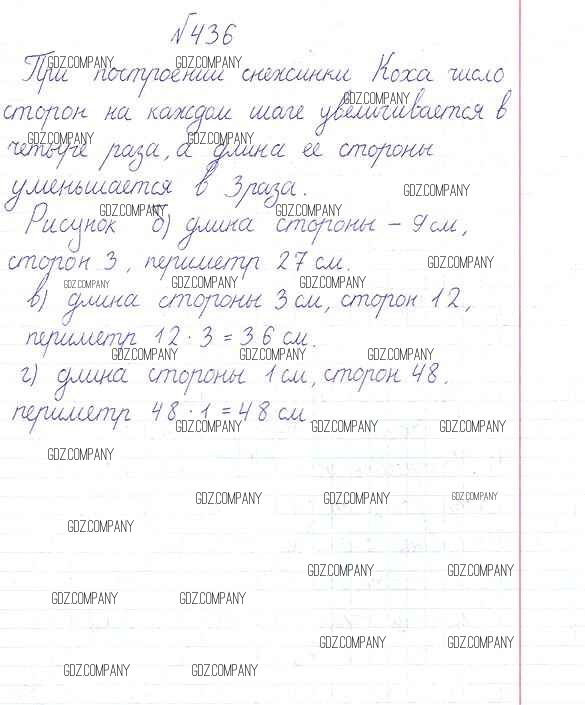 №436
GDZ.COMPANY GDZ.COMPANY
При построении снежинки Коха число
GDZ.COMPANY
сторон на каждом шаге увеличивается в
GDZ.COMPANY GDZ.COMPANY
четыре раза, а длина ее стороны
уменьшается в 3 раза.
GDZ.COMPANY
GDZ.COMPANY GDZ.COMPANY
Рисунок б) длина стороны – 9 см,
сторон 3, периметр 27 см.
GDZ.COMPANY
GDZ.COMPANY GDZ.COMPANY GDZ.COMPANY
в) длина стороны 3 см, сторон 12,
периметр 12 · 3 = 36 см.
GDZ.COMPANY GDZ.COMPANY GDZ.COMPANY
г) длина стороны 1 см, сторон 48.
периметр 48 · 1 = 48 см
GDZ.COMPANY GDZ.COMPANY GDZ.COMPANY
GDZ.COMPANY
GDZ.COMPANY GDZ.COMPANY GDZ.COMPANY
GDZ.COMPANY
GDZ.COMPANY GDZ.COMPANY
GDZ.COMPANY GDZ.COMPANY
GDZ.COMPANY GDZ.COMPANY
GDZ.COMPANY GDZ.COMPANY